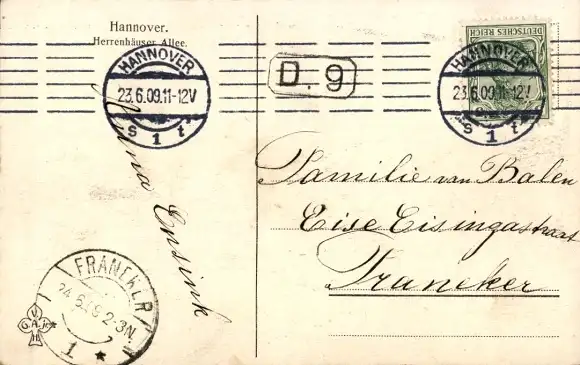 Hannover.
Herrenhäuser Allee.
HANNOVER
23.6.09.11-12V
S 1 t
D. 9
DEUTSCHES REICH
HANNOVER
23.6.09.11-12V
S 1 t
Ensink
Familie van Balen
Eise Eisingastraat
Franeker
FRANEKER
2-3N
1